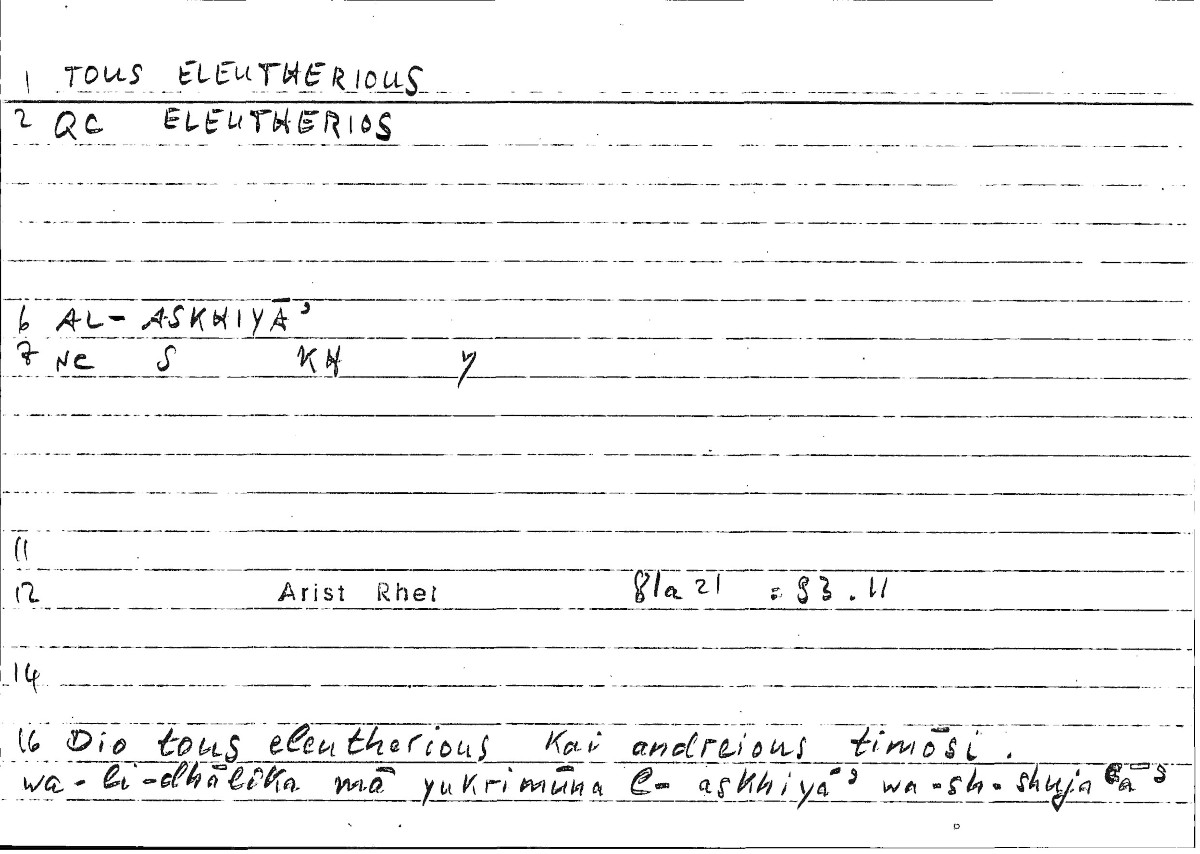 1 TOUS ELEUTHERIOUS
2 QC ELEUTHERIOS
6 AL- ASKHIYĀʾ
7 NC S KH Y
11
12 Arist Rhet 81a21 : 93.11
14
16 Dio tous eleutherious kai andreious timōsi.
wa-li-dhālika mā yukrimūna l- askhiyāʾ wa-sh-shujaʿāʾ